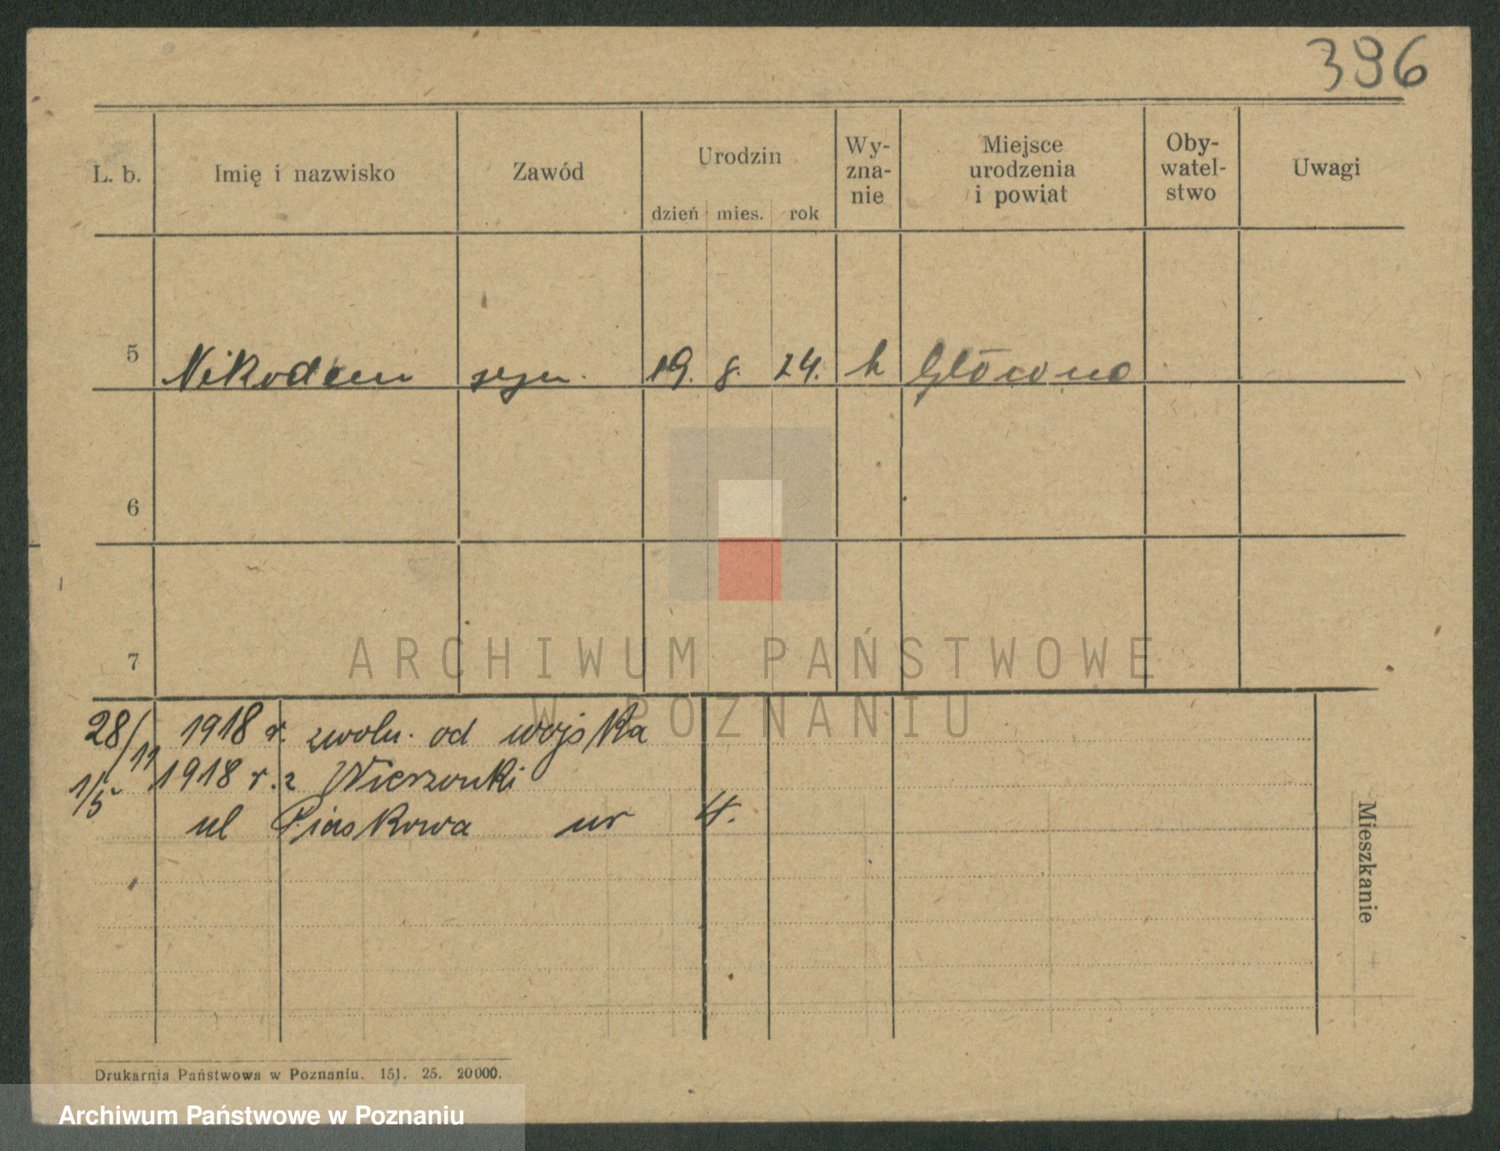 396
L. b. Imię i nazwisko Zawód Urodzin dzień mies. rok Wy-zna-nie Miejsce urodzenia i powiat Oby-watel-stwo Uwagi
5 Nikodem syn. 19. 8. 24. k Główno
6
7
28/11 1918 r. zwoln. od wojska
1/5 1918 r. z Wierzonki
ul Piaskowa nr 4.
Mieszkanie
Drukarnia Państwowa w Poznaniu. 151. 25. 20000.
ARCHIWUM PAŃSTWOWE
W POZNANIU
Archiwum Państwowe w Poznaniu